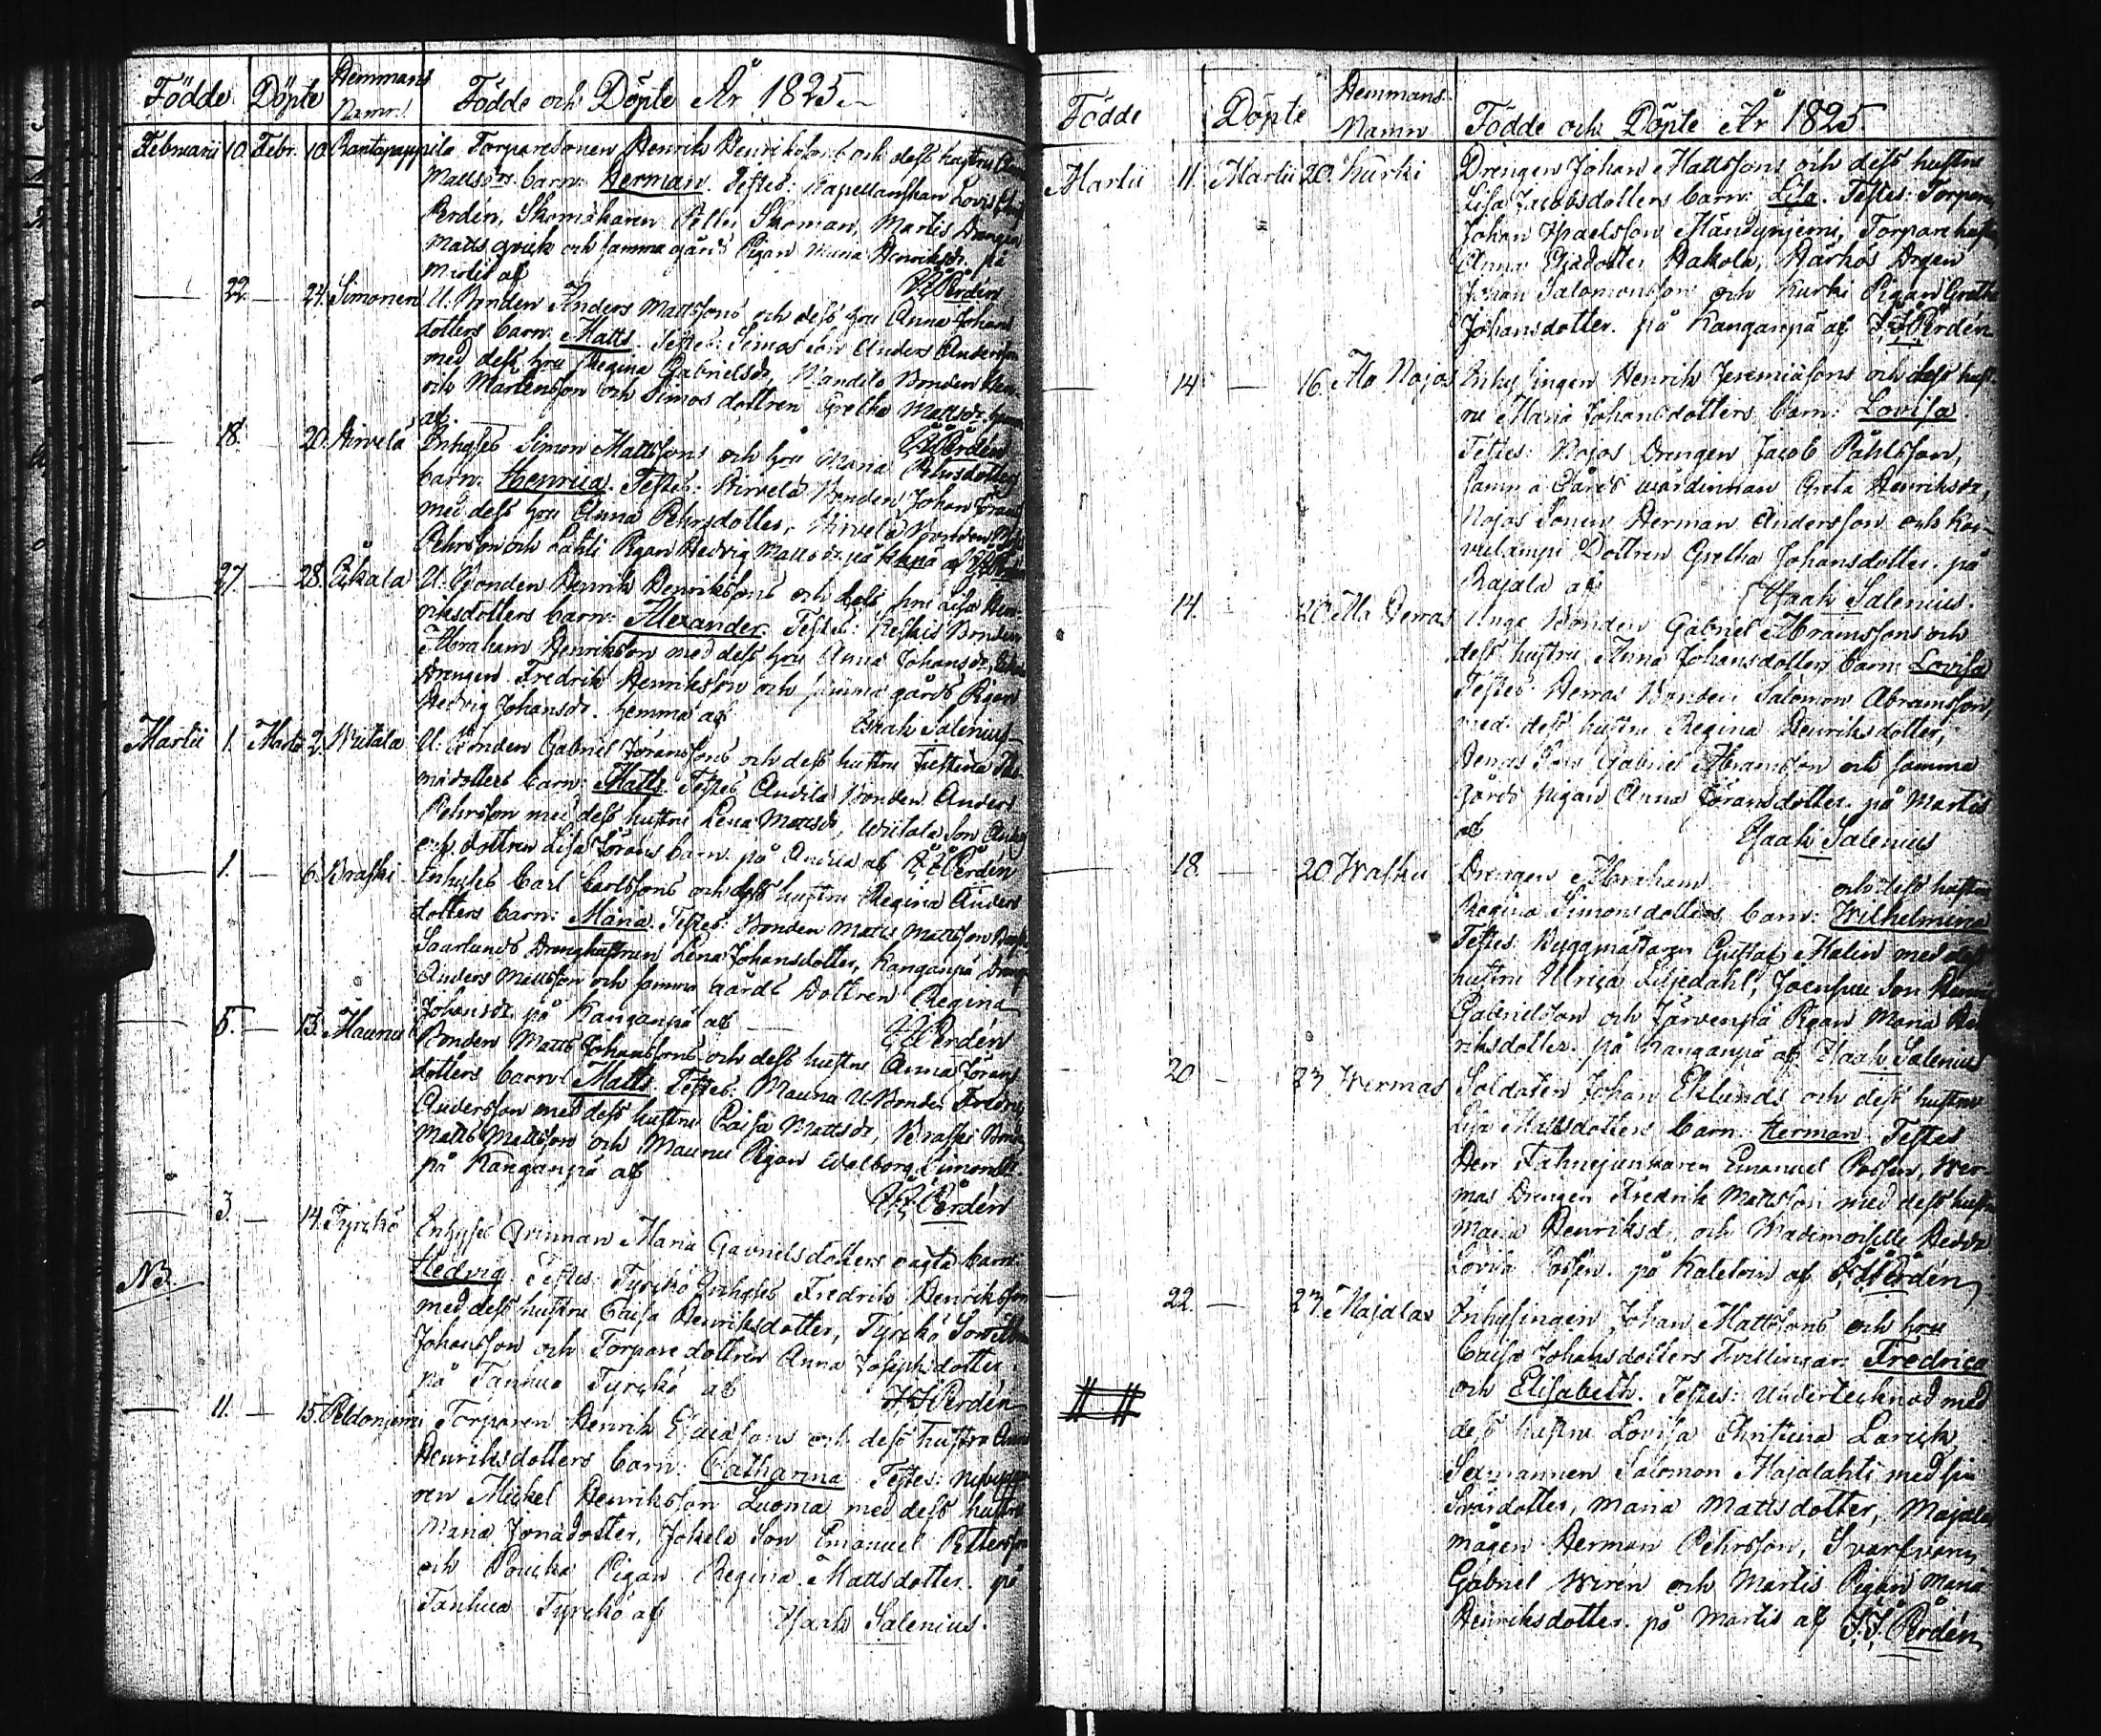 Födde Döpte Hemmans Namn Födde och Döpte År 1825
Februarii 10. Febr. 10. Rantapappila Torparesonen Henrik och dess hustru
Mattsdrs barn: Herman. Testes: Kapellanskan Lovis
Perdén, Skomakaren Skoman, Martis Drengen
Matts och samma gårds Pigan Maria Henriksdr. på
Martis af Perdén
22. 24. Simonen U. Bonden Anders Mattssons och dess hru Anna Johans
dotters barn: Matts. Testes: Simos Son Anders Andersson
med dess hru Regina Gabrielsdr, Bonden
och Mårtensson och Simos dottren Gretha Mattsdr
af Perdén
18. 20. Hirvelä Inhyses Simon Mattssons och hru Maria Pehrsdotters
barn: Henrica. Testes: Hirvelä Bonden Johan
med dess hru Anna Pehrsdotter, Hirvelä Bonden
Pehrsson och Lahti Pigan Hedvig Mattsdr. på af
27. 28. Äkälä U. Bonden Henrik Henrikssons och dess hru Lisa Hen-
riksdotters barn: Alexander. Testes: Bonden
Abraham Henriksson med dess hru Anna Johansdr,
Drengen Fredrik Henriksson och samma gårds Pigan
Hedvig Johansdr. hemma af Isaak Salenius
Martii 1. Martii 2. Wiitala U. Bonden Gabriel Jöranssons och dess hustru Justina
dotters barn: Matts. Testes Andila Bonden Anders
Pehrsson med dess hustru Lena Mattsdr, Wiitala Son
och dottren Lisa Jörans barn. på Andila af Perdén
1. 6. Kraski Inhyses Carl Carlssons och dess hustru Regina Anders
dotters barn: Maria. Testes: Bonden Matts Mattsson
Saarlunds Drenghustrun Lena Johansdotter, Kanganpä
Anders Mattsson och samma gårds Dottren Regina
Johansdr. på Kanganpä af Perdén
5. 13. Maunu Bonden Matts Johanssons och dess hustru Anna Jörans
dotters barn: Matts. Testes: Maunu U. Bonden Fredric
Andersson med dess hustru Caisa Mattsdr, Kraski
Matts Mattsson och Maunu Pigan Walborg
på Kanganpä af Perdén
3. 14. Tyrckö Inhyses Qvinnan Maria Gabrielsdotters oägta barn:
NB Hedvig. Testes: Tyrckö Inhyses Fredrik Henriksson
med dess hustru Caisa Henriksdotter, Tyrckö Son
Johansson och Torpare dottren Anna Josephsdotter
på Tanhua Tyrckö af Perdén
11. 15. Peldoniemi Torparen Henrik Esaiassons och dess hustru
Henriksdotters barn: Catharina. Testes:
ren Mickel Henriksson Luoma med dess hustru
Maria Jonædotter, Jokela Son Emanuel Pettersson
och Poucka Pigan Regina Mattsdotter. på
Tanhua Tyrckö af Isaak Salenius.
Födde Döpte Hemmans Namn Födde och Döpte År 1825.
Martii 11. Martii 20. Kurki Drengen Johan Mattssons och dess hustru
Lisa Jacobsdotters barn: Lisa. Testes: Torparen
Johan Israelsson Mändyniemi, Torpare hustrun
Anna Hakola, Drgen
Johan Salomonsson och Kurki Pigan Gretha
Johansdotter. på Kanganpä af J. J. Perdén
14 16. Ala Nojos Inhysingen Henrik Jeremiæsons och dess hust-
ru Maria Johansdotters barn: Lovisa.
Testes: Nojos Drengen Jacob Påhlsson,
samma Gårds wärdinnan Greta Henriksdr,
Nojos Sonen Herman Andersson och
Dottren Gretha Johansdotter. på
Rajala af Isaak Salenius.
14. 20. Ala Herras Unge Bonden Gabriel Abramssons och
dess hustru Anna Johansdotters barn: Lovisa
Testes: Herras Bonden Salomon Abramsson,
med dess hustru Regina Henriksdotter,
Herras Son Gabriel Abramsson och samma
gårds pigan Anna Jöransdotter. på Martis
af Isaak Salenius
18. 20 Wasku Drengen Abraham och dess hustru
Regina Simonsdotters barn: Wilhelmina
Testes: Byggmästaren Gustaf Malin med dess
hustru Ulrica Liljedahl, Joensuu Son
Gabrielsson och Järvenpä Pigan Maria
riksdotter. på Kanganpä af Isaak Salenius
20 23 Wermas Soldaten Johan Eklunds och dess hustru
Lisa Mattsdotters barn: Herman. Testes
Herr Fahnejunkaren Emanuel Possen, Wer-
mas Drengen Fredrik Mattsson med dess hustru
Maria Henriksd. och Mademoiselle Hedvi
Lovisa Possen. på af Perdén
22. 27. Majala Inhysingen Johan Mattssons och hru
Caisa Johansdotters Tvillingar: Fredrica
# # och Elisabeth. Testes: Undertecknad med
dess hustru Lovisa Christina Larick
Sexmannen Salomon Majalahti med sin
Svärdotter, Maria Mattsdotter, Majala
mågen Herman Pehrsson, Svarfvaren
Gabriel Wirén och Martis Pigan Maria
Henriksdotter. på Martis af J. J. Perdén